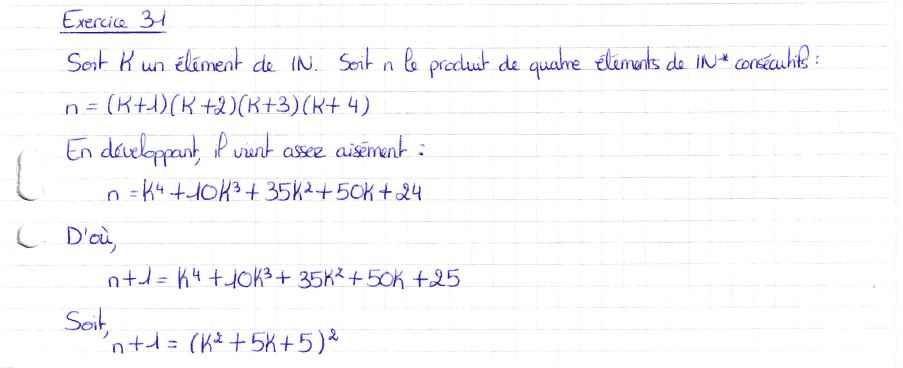 Exercice 31
Soit K un élément de IN. Soit n le produit de quatre éléments de IN* consécutifs :
n = (K+1)(K+2)(K+3)(K+4)
En développant, il vient assez aisément :
n = K⁴ + 10K³ + 35K² + 50K + 24
D'où,
n+1 = K⁴ + 10K³ + 35K² + 50K + 25
Soit,
n+1 = (K² + 5K + 5)²